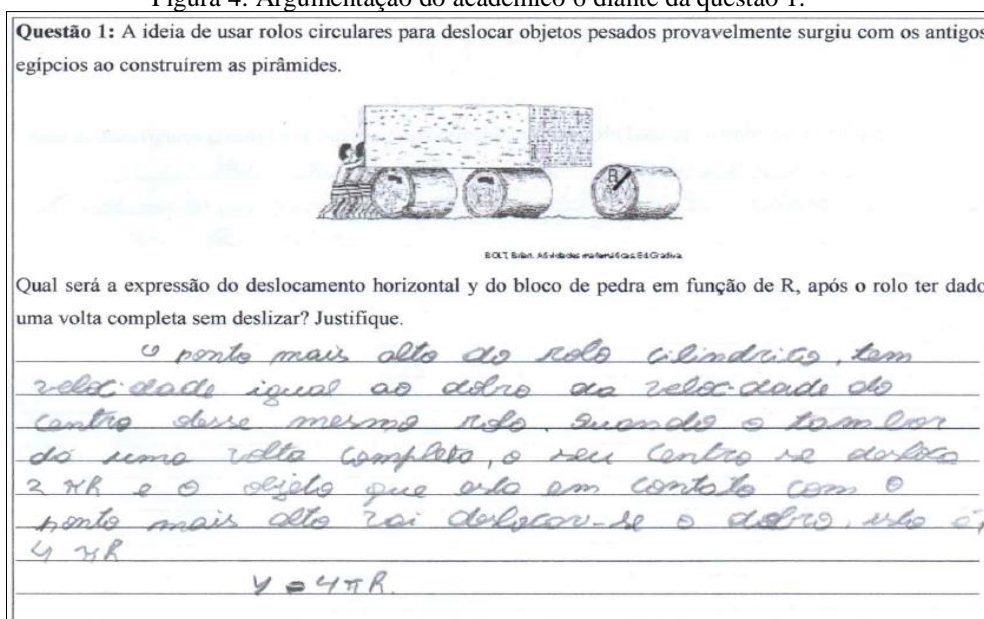 Figura 4: Argumentação do acadêmico 6 diante da questão 1.
Questão 1: A ideia de usar rolos circulares para deslocar objetos pesados provavelmente surgiu com os antigos
egípcios ao construírem as pirâmides.
R
BOLT, Brian. Atividades matemáticas. Ed Gradiva.
Qual será a expressão do deslocamento horizontal y do bloco de pedra em função de R, após o rolo ter dado
uma volta completa sem deslizar? Justifique.
O ponto mais alto do rolo cilindrico, tem
velocidade igual ao dobro da velocidade do
centro desse mesmo rolo. Quando o tambor
dá uma volta completa, o seu centro se desloca
2πR e o objeto que esta em contato com o
ponto mais alto vai deslocar-se o dobro, isto é,
4πR
y = 4πR.